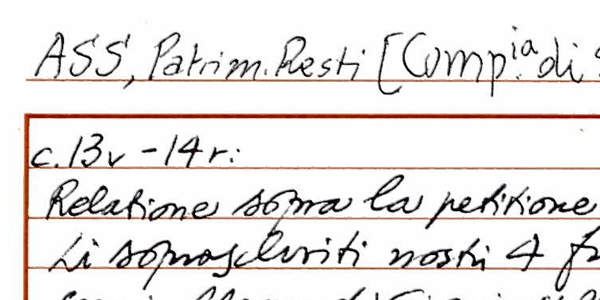 ASS, Patrim. Resti [Comp.ia di
c. 13v - 14r:
Relatione sopra la petitione
Li soprascriti nostri 4